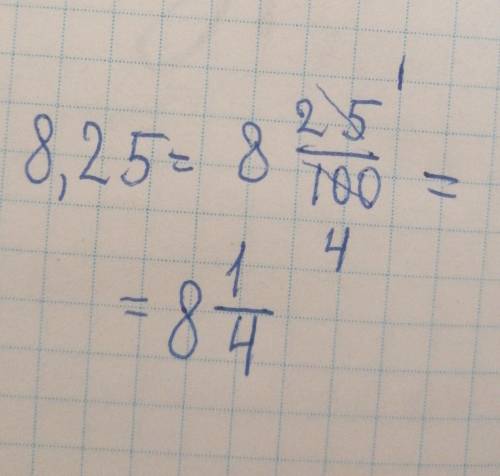 8,25 = 8 25/100 1 4 =
= 8 1/4